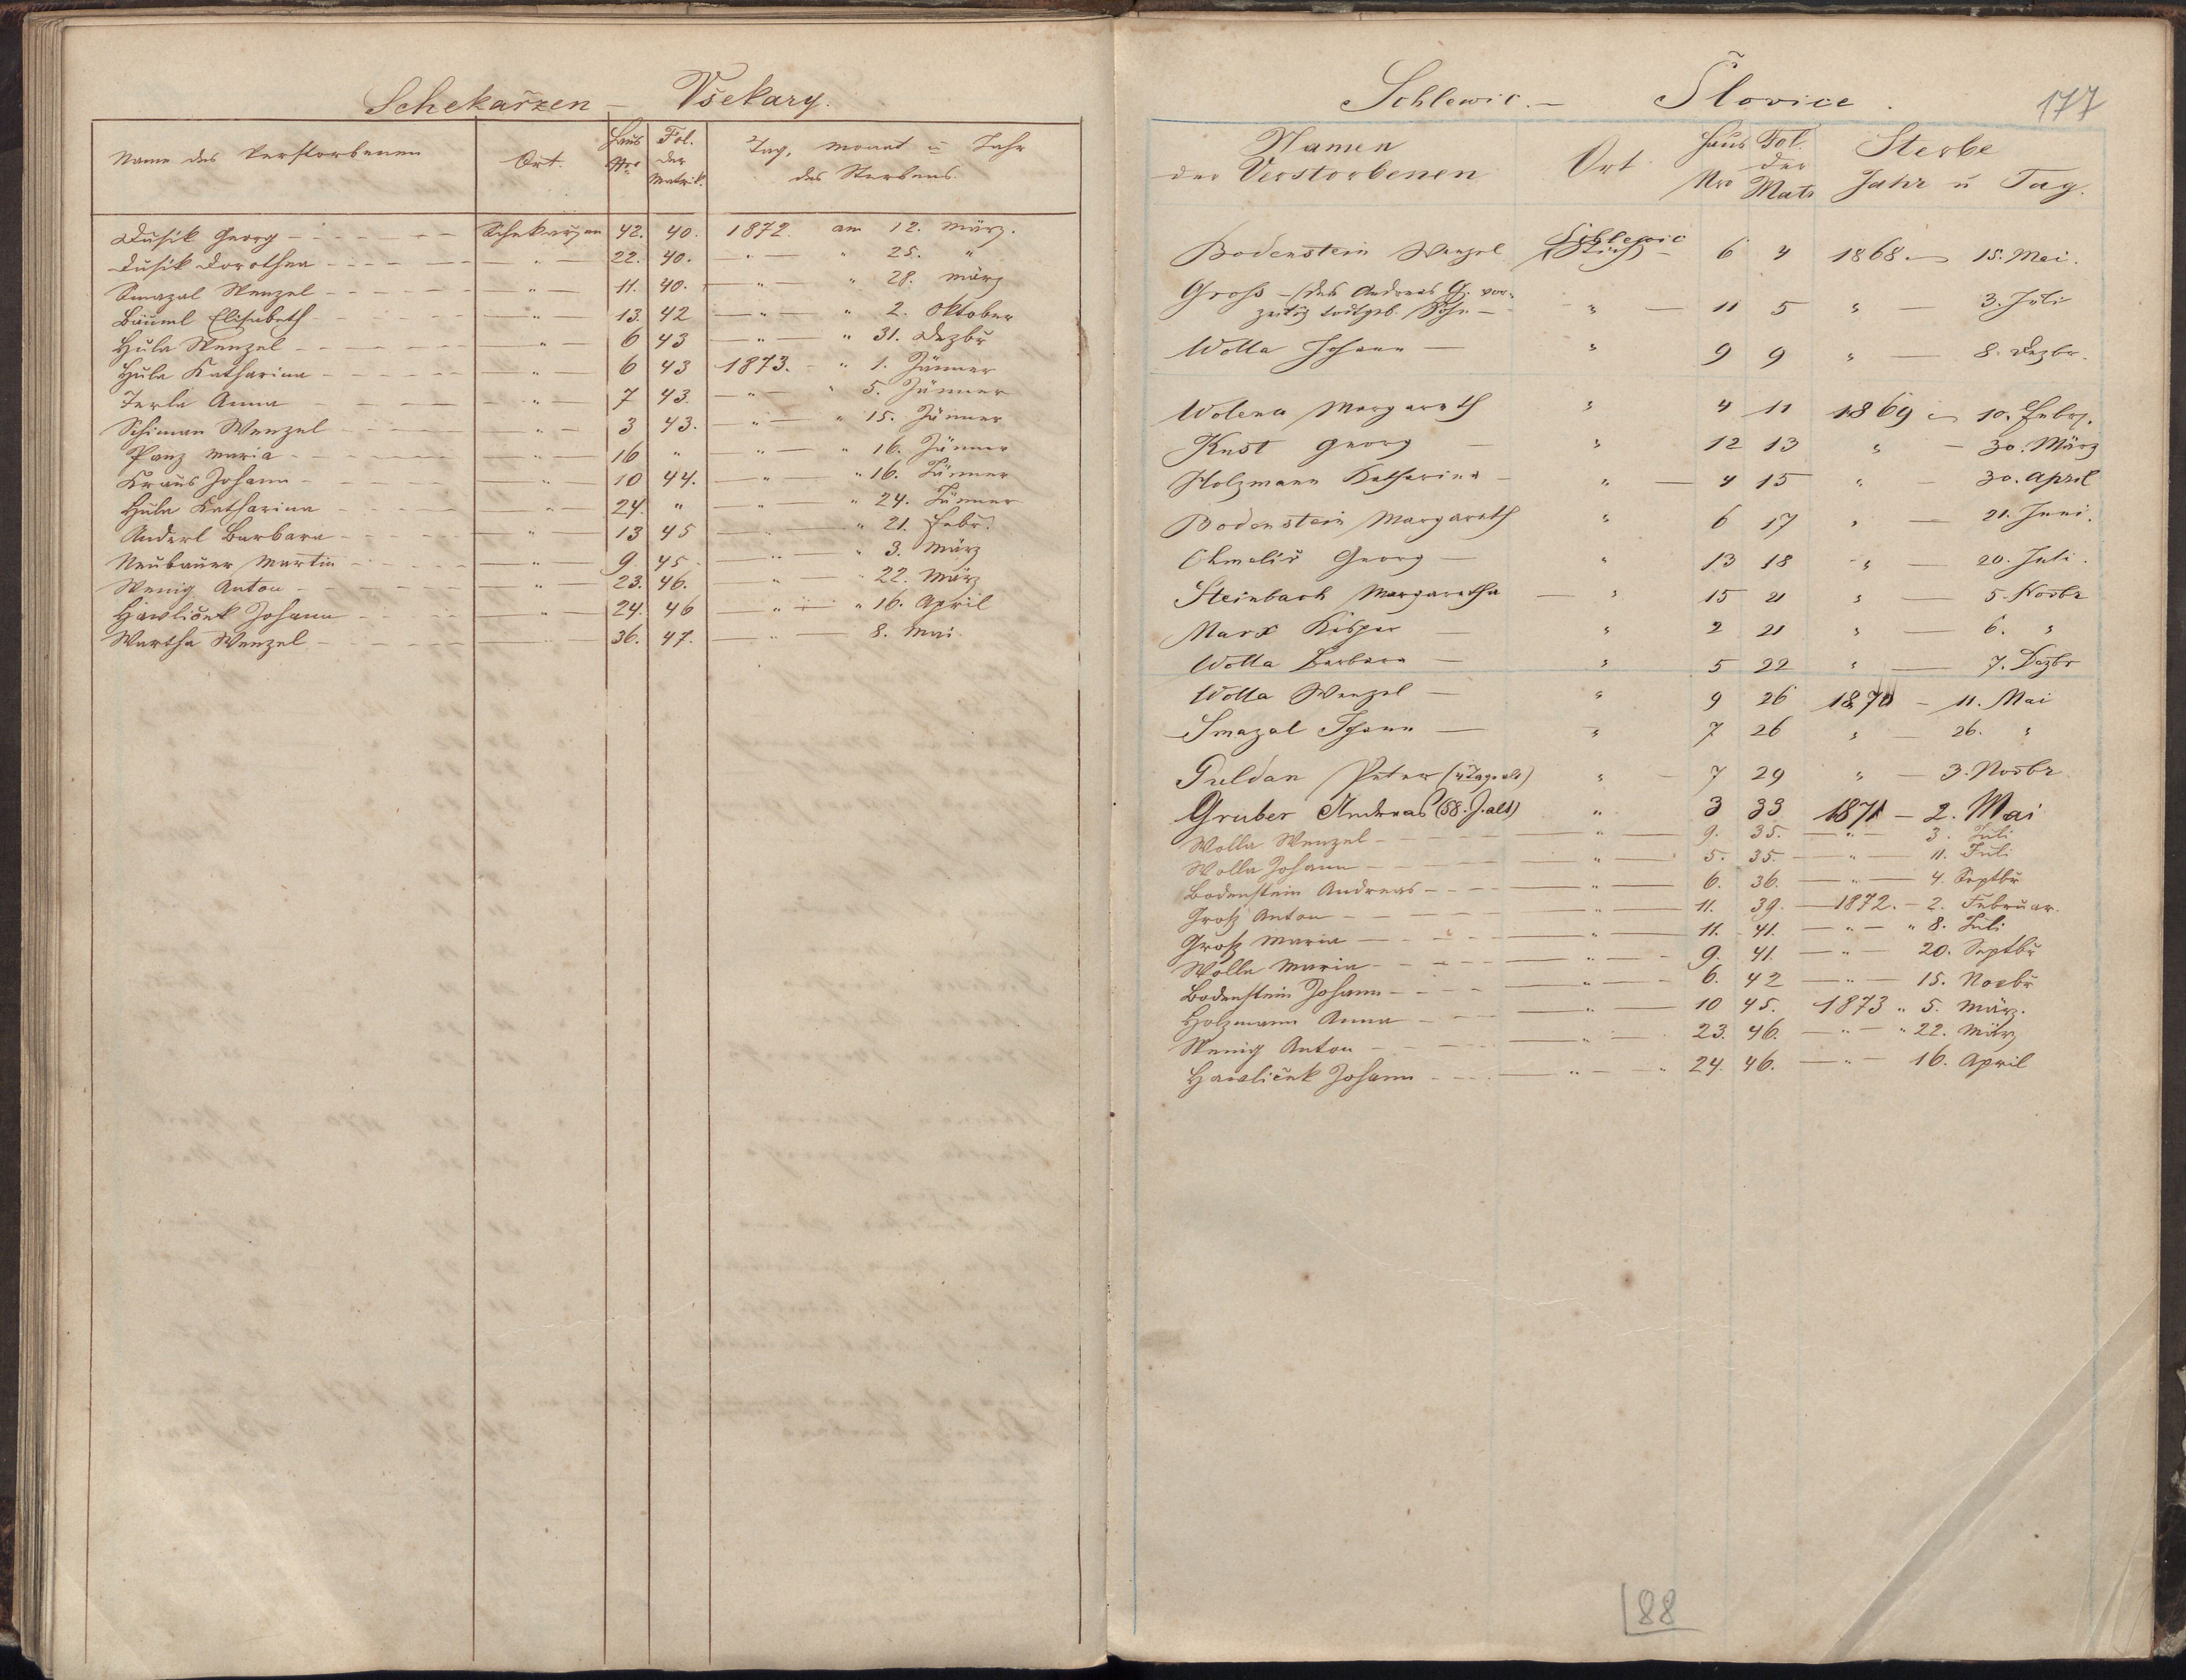 Schekařzen – Všekary.
Name des Verstorbenen Ort. Haus Nro Fol. der Matrik. Tag, Monat u Jahr des Sterbens.
Dusik Georg Schekařzen 42. 40. 1872. am 12. März.
Dusik Dorothea " 22. 40. " " 25. "
Smazal Wenzel " 11. 40. " " 28. März
Bäuml Elisabeth " 13. 42 " " 2. Oktober
Hula Wenzel " 6 43 " " 31. Dezbr
Hula Katharina " 6 43 1873. " 1. Jänner
Terla Anna " 7 43. " " 5. Jänner
Schiman Wenzel " 3 43. " " 15. Jänner
Panz Maria " 16 " " " 16. Jänner
Kraus Johann " 10 44. " " 16. Jänner
Hula Katharina " 24. " " " 24. Jänner
Anderl Barbara " 13 45 " 21. Febr.
Neubauer Martin " 9. 45 " " 3. März
Wenig Anton " 23. 46. " " 22. März
Hawliček Johann " 24. 46 " " 16. April
Wartha Wenzel " 36. 47. " 8. Mai
Schlewic. – Šlovice. 177
Namen der Verstorbenen Ort Haus Nro Fol. der Matr Sterbe Jahr u Tag.
Bodenstein Wenzel Schlewic 6 4 1868 – 15. Mai.
Gross – (des Andreas G. vor-
zeitig todtgeb. Sohn – " 11 5 " – 3. Juli
Wolla Johann – " 9 9 " – 8. Dezbr.
Wolena Margareth " 4 11 1869 – 10. Febr.
Kust Georg – " 12 13 " – 30. März
Holzmann Katharina – " 4 15 " – 30. April
Bodenstein Margareth " 6 17 " – 21. Juni.
Chmelíř Georg – " 13 18 " – 20. Juli.
Steinbach Margaretha – " 15 21 " – 5. Novbr
Marx Kaspar – " 2 21 " – 6. "
Wolla Barbara – " 5 22 " – 7. Dezbr
Wolla Wenzel – " 9 26 1870 – 11. Mai
Smazal Johann – " 7 26 " – 26. "
Puldan Peter (4 Tage alt) " 7 29 " – 3. Novbr.
Gruber Andreas (58. J. alt) " 3 33 1871 – 2. Mai
Wolla Wenzel " 9. 35. " 3. Juli
Wolla Johann " 5. 35. " 11. Juli
Bodenstein Andreas " 6. 36. " 4. Septbr
Groß Anton " 11. 39. 1872. – 2. Februar.
Groß Maria " 11. 41. " " 8. Juli
Wolla Maria " 9. 41. " 20. Septbr
Bodenstein Johann " 6. 42 " 15. Novbr
Holzmann Anna " 10 45. 1873 " 5. März.
Wenig Anton " 23. 46. " " 22. März
Hawliček Johann " 24. 46. " 16. April
88